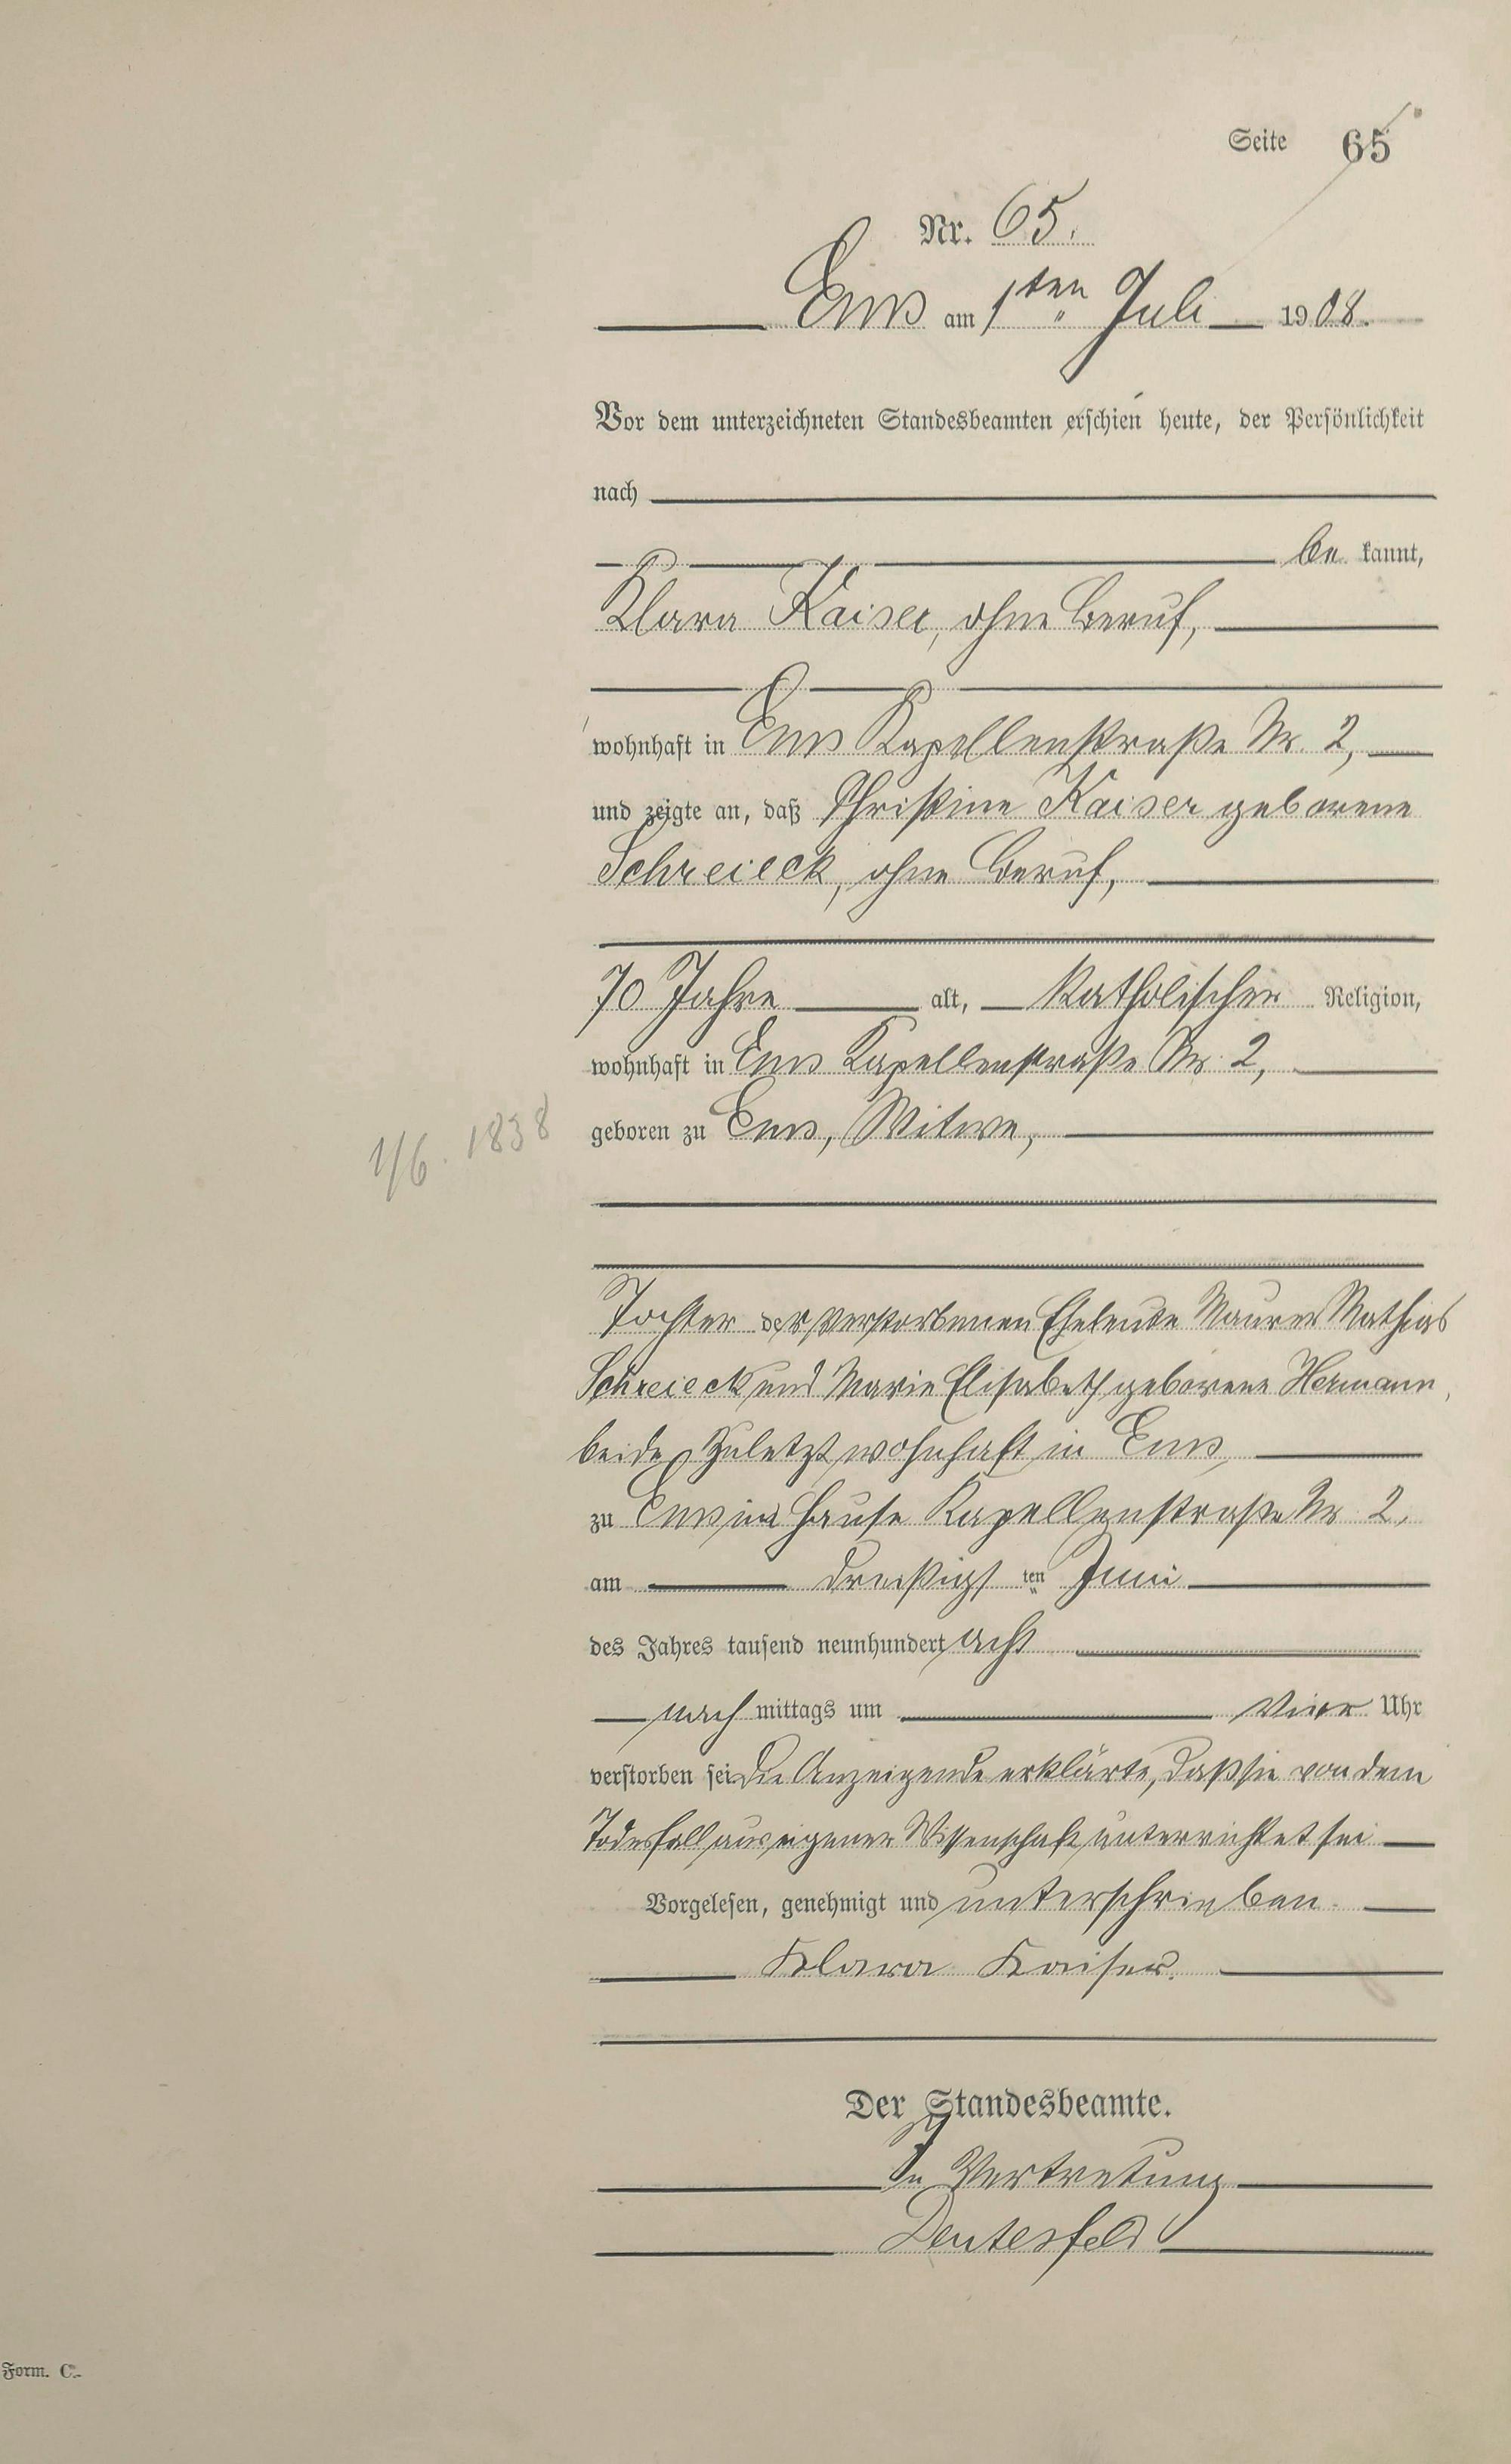 Seite 65
Nr. 65.
Ems am 1ten Juli 1908.
Vor dem unterzeichneten Standesbeamten erschien heute, der Persönlichkeit
nach
be kannt,
Klara Kaiser, ohne Beruf,
wohnhaft in Ems Kapellenstraße Nr. 2,
und zeigte an, daß Christine Kaiser geborene
Schreieck, ohne Beruf,
70 Jahre alt, katholischer Religion,
wohnhaft in Ems Kapellenstraße Nr. 2,
1/6. 1838 geboren zu Ems, Witwe,
Tochter der verstorbenen Eheleute Maurer Mathias
Schreieck und Marie Elisabeth geborene Hermann,
beide zuletzt wohnhaft in Ems,
zu Ems im Hause Kapellenstraße Nr. 2,
am dreißigsten Juni
des Jahres tausend neunhundert acht
nach mittags um vier Uhr
verstorben sei. Die Anzeigende erklärte, daß sie von dem
Todesfall aus eigener Wissenschaft unterrichtet sei
Vorgelesen, genehmigt und unterschrieben.
Klara Kaiser.
Der Standesbeamte.
In Vertretung
Deutesfeld
Form. C.